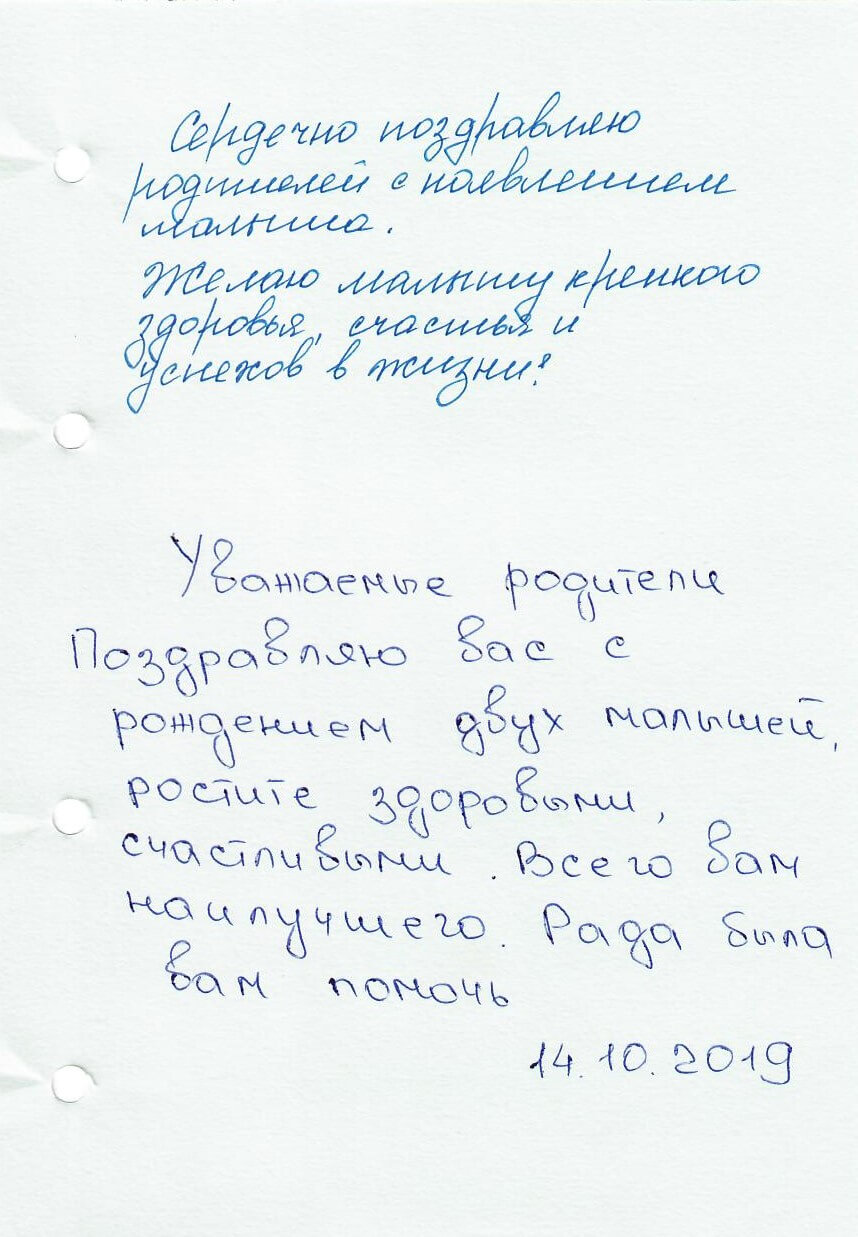 Сердечно поздравляю
родителей с появлением
малыша.
Желаю малышу крепкого
здоровья, счастья и
успехов в жизни!
Уважаемые родители
Поздравляю вас с
рождением двух малышей,
ростите здоровыми,
счастливыми. Всего вам
наилучшего. Рада была
вам помочь
14.10.2019